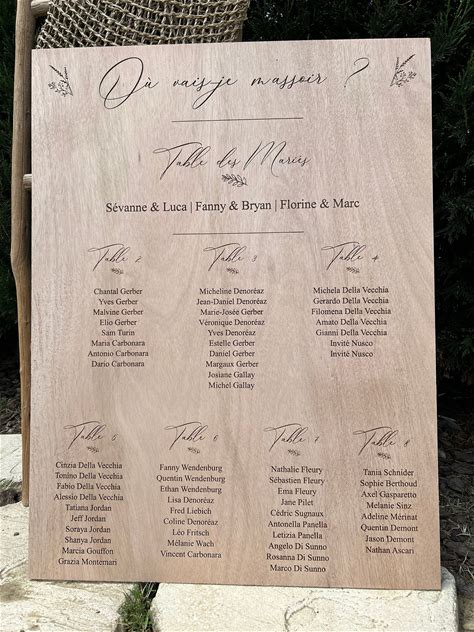 Où vais-je m'assoir ?
Table des Mariés
Sévanne & Luca | Fanny & Bryan | Florine & Marc
Table 2
Chantal Gerber
Yves Gerber
Malvine Gerber
Elio Gerber
Sam Turin
Maria Carbonara
Antonio Carbonara
Dario Carbonara
Table 3
Micheline Denoréaz
Jean-Daniel Denoréaz
Marie-Josée Gerber
Véronique Denoréaz
Yves Denoréaz
Estelle Gerber
Daniel Gerber
Margaux Gerber
Josiane Gallay
Michel Gallay
Table 4
Michela Della Vecchia
Gerardo Della Vecchia
Filomena Della Vecchia
Amato Della Vecchia
Gianni Della Vecchia
Invité Nusco
Invité Nusco
Table 5
Cinzia Della Vecchia
Tonino Della Vecchia
Fabio Della Vecchia
Alessio Della Vecchia
Tatiana Jordan
Jeff Jordan
Soraya Jordan
Shanya Jordan
Marcia Gouffon
Grazia Montemari
Table 6
Fanny Wendenburg
Quentin Wendenburg
Ethan Wendenburg
Lisa Denoréaz
Fred Liebich
Coline Denoréaz
Léo Fritsch
Mélanie Wach
Vincent Carbonara
Table 7
Nathalie Fleury
Sébastien Fleury
Ema Fleury
Jane Pilet
Cédric Sugnaux
Antonella Panella
Letizia Panella
Angelo Di Sunno
Rosanna Di Sunno
Marco Di Sunno
Table 8
Tania Schnider
Sophie Berthoud
Axel Gasparetto
Melanie Sinz
Adeline Mérinat
Quentin Demont
Jason Demont
Nathan Ascari